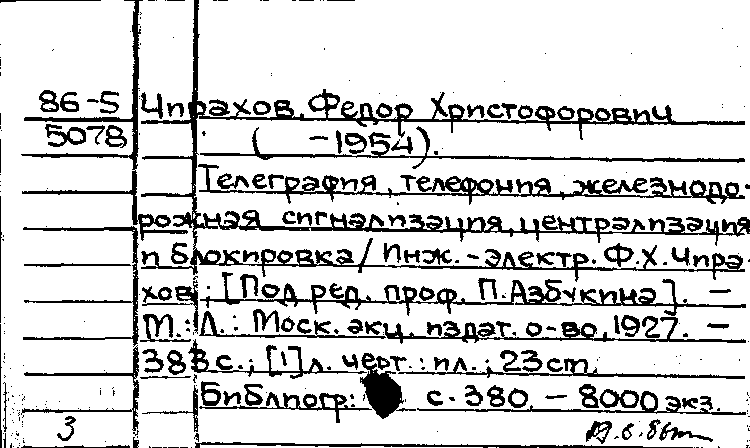 86-5 Чпрахов, Федор Христофорович
5078 ( -1954).
Телеграфия, телефония, железнодо-
рожная сигнализация, централизация
и блокировка / Инж.-электр. Ф.Х.Чира-
хов; [Под ред. проф. П.Азбукина]. —
М.: Л.: Моск. акц. издат. о-во, 1927. —
383 с.; [1] л. черт.: ил.; 23 ст.
Библиогр: с. 380. — 8000 экз.
3